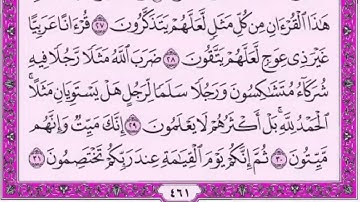 هَٰذَا ٱلْقُرْءَانِ مِن كُلِّ مَثَلٍ لَّعَلَّهُمْ يَتَذَكَّرُونَ ٢٧ قُرْءَانًا عَرَبِيًّا
غَيْرَ ذِى عِوَجٍ لَّعَلَّهُمْ يَتَّقُونَ ٢٨ ضَرَبَ ٱللَّهُ مَثَلًا رَّجُلًا فِيهِ
شُرَكَآءُ مُتَشَٰكِسُونَ وَرَجُلًا سَلَمًا لِّرَجُلٍ هَلْ يَسْتَوِيَانِ مَثَلًا ۚ
ٱلْحَمْدُ لِلَّهِ ۚ بَلْ أَكْثَرُهُمْ لَا يَعْلَمُونَ ٢٩ إِنَّكَ مَيِّتٌ وَإِنَّهُم
مَّيِّتُونَ ٣٠ ثُمَّ إِنَّكُمْ يَوْمَ ٱلْقِيَٰمَةِ عِندَ رَبِّكُمْ تَخْتَصِمُونَ ٣١
٤٦١